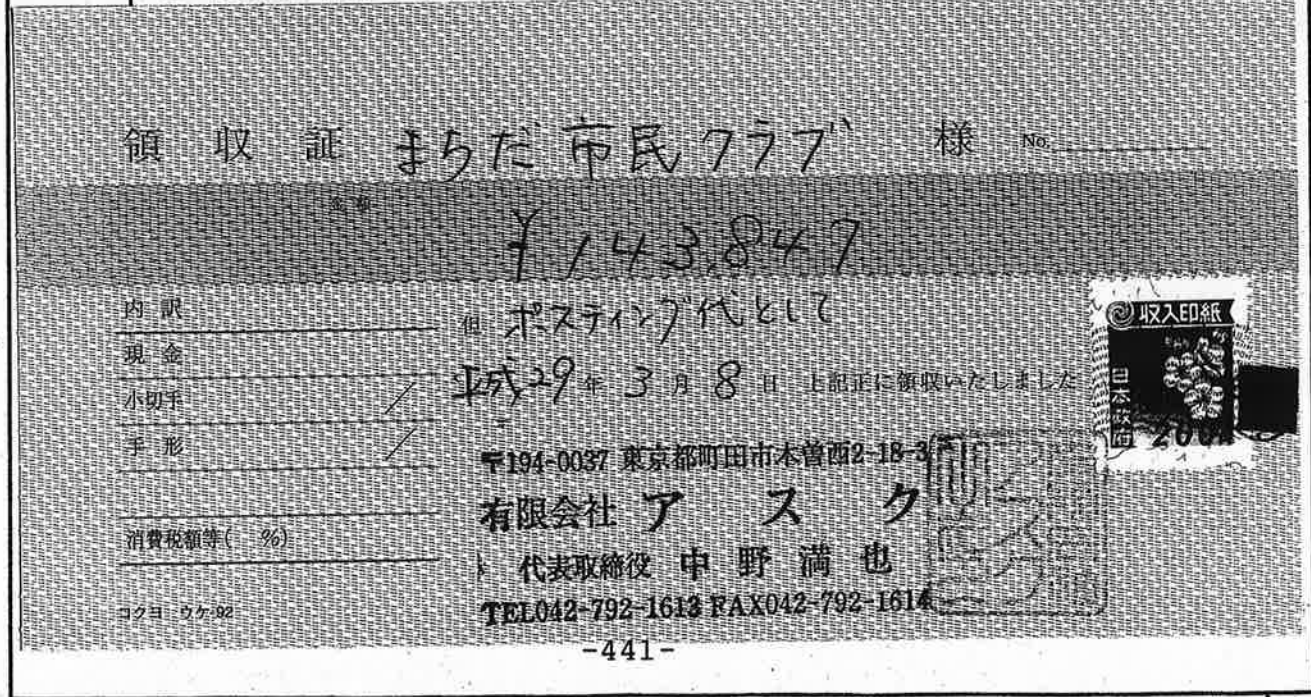 領収証 まちだ市民クラブ 様 No.
金額
¥143,847
内訳
但 ポスティング代として
現金
平成29年3月8日 上記正に領収いたしました
小切手
手形
消費税額等( %)
コクヨ ウケ-92
収入印紙
日本政府
200
〒194-0037 東京都町田市木曽西2-18-3
有限会社 アスク
代表取締役 中野満也
TEL042-792-1613 FAX042-792-1614
-441-